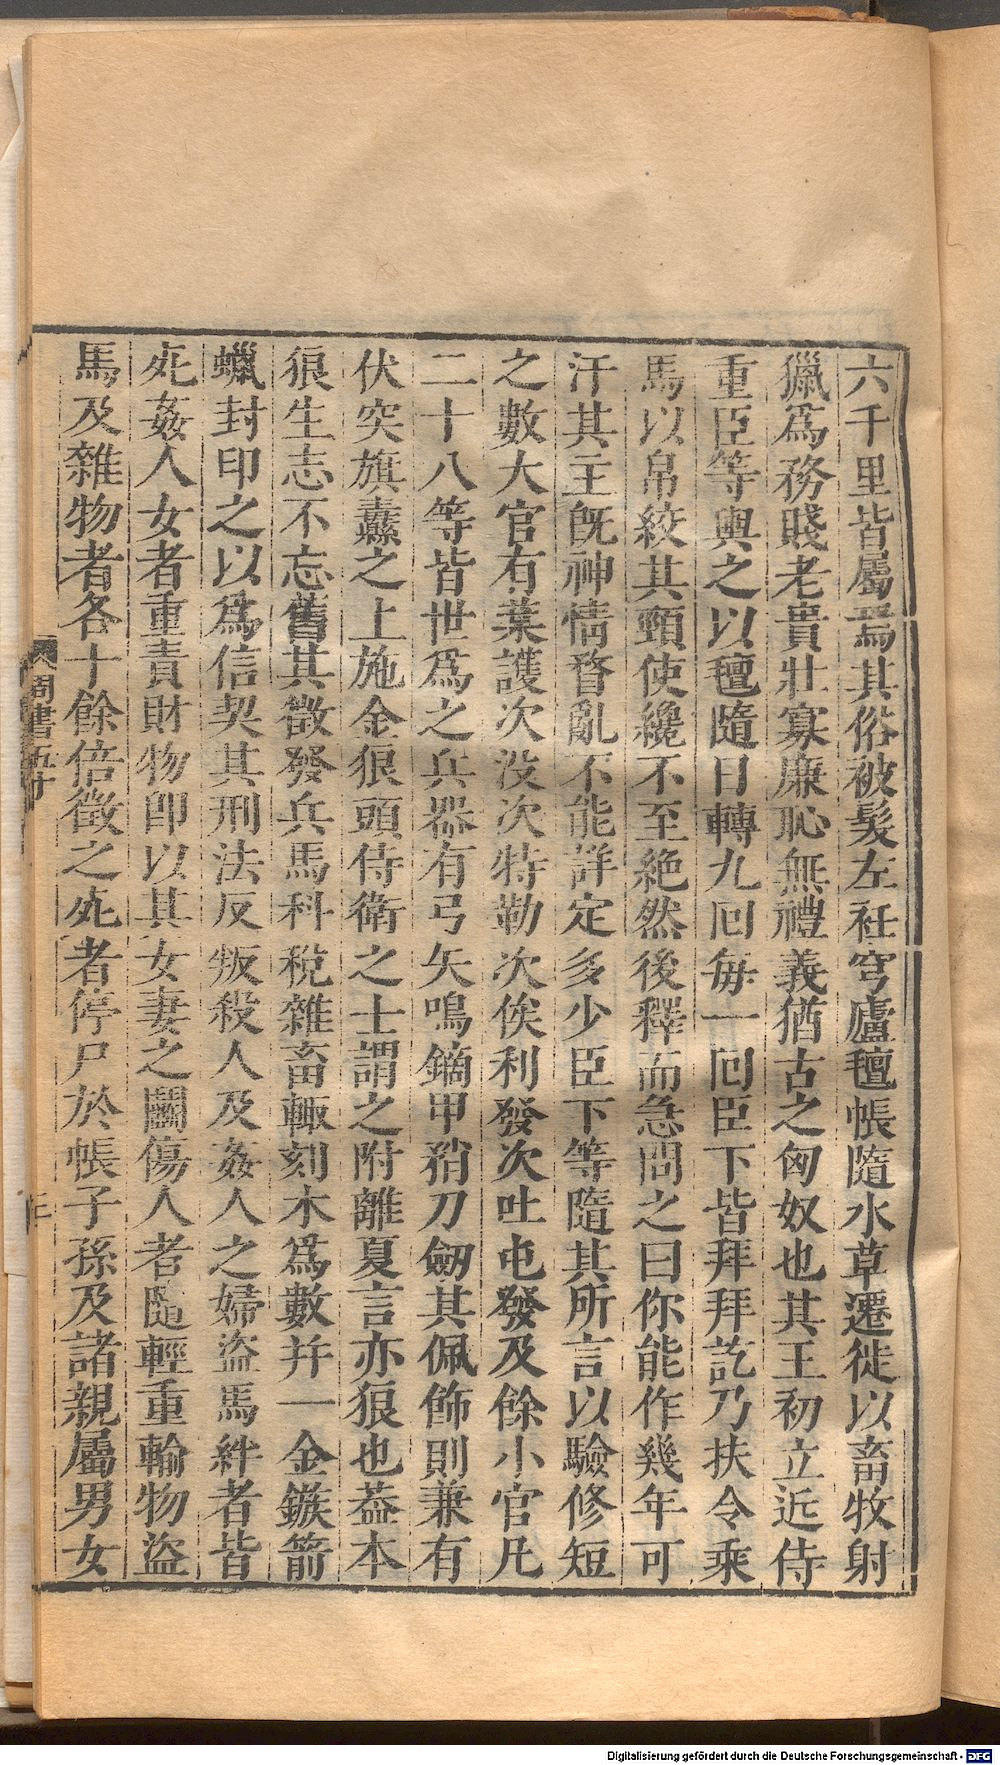 六千里皆屬焉其俗被髮左衽穹廬氊帳隨水草遷徙以畜牧射
獵爲務賤老貴壯寡廉恥無禮義猶古之匈奴也其王初立近侍
重臣等輿之以氊隨日轉九囘每一囘臣下皆拜拜訖乃扶令乘
馬以帛絞其頸使纔不至絕然後釋而急問之曰你能作幾年可
汗其主旣神情瞀亂不能詳定多少臣下等隨其所言以驗修短
之數大官有葉護次没次特勒次俟利發次吐屯發及餘小官凡
二十八等皆世爲之兵器有弓矢鳴鏑甲矟刀劒其佩飾則兼有
伏突旗纛之上施金狼頭侍衛之士謂之附離夏言亦狼也葢本
狼生志不忘舊其徵發兵馬科稅雜畜輒刻木爲數并一金鏃箭
蠟封印之以爲信契其刑法反叛殺人及姦人之婦盜馬絆者皆
死姦人女者重責財物卽以其女妻之鬭傷人者隨輕重輸物盜
馬及雜物者各十餘倍徵之死者停尸於帳子孫及諸親屬男女
周書五十
三
Digitalisierung gefördert durch die Deutsche Forschungsgemeinschaft - DFG